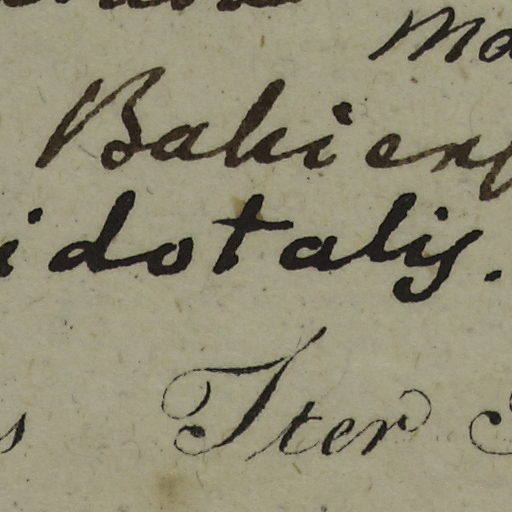 Ma
Bahienſ
idotalis.
s Iter